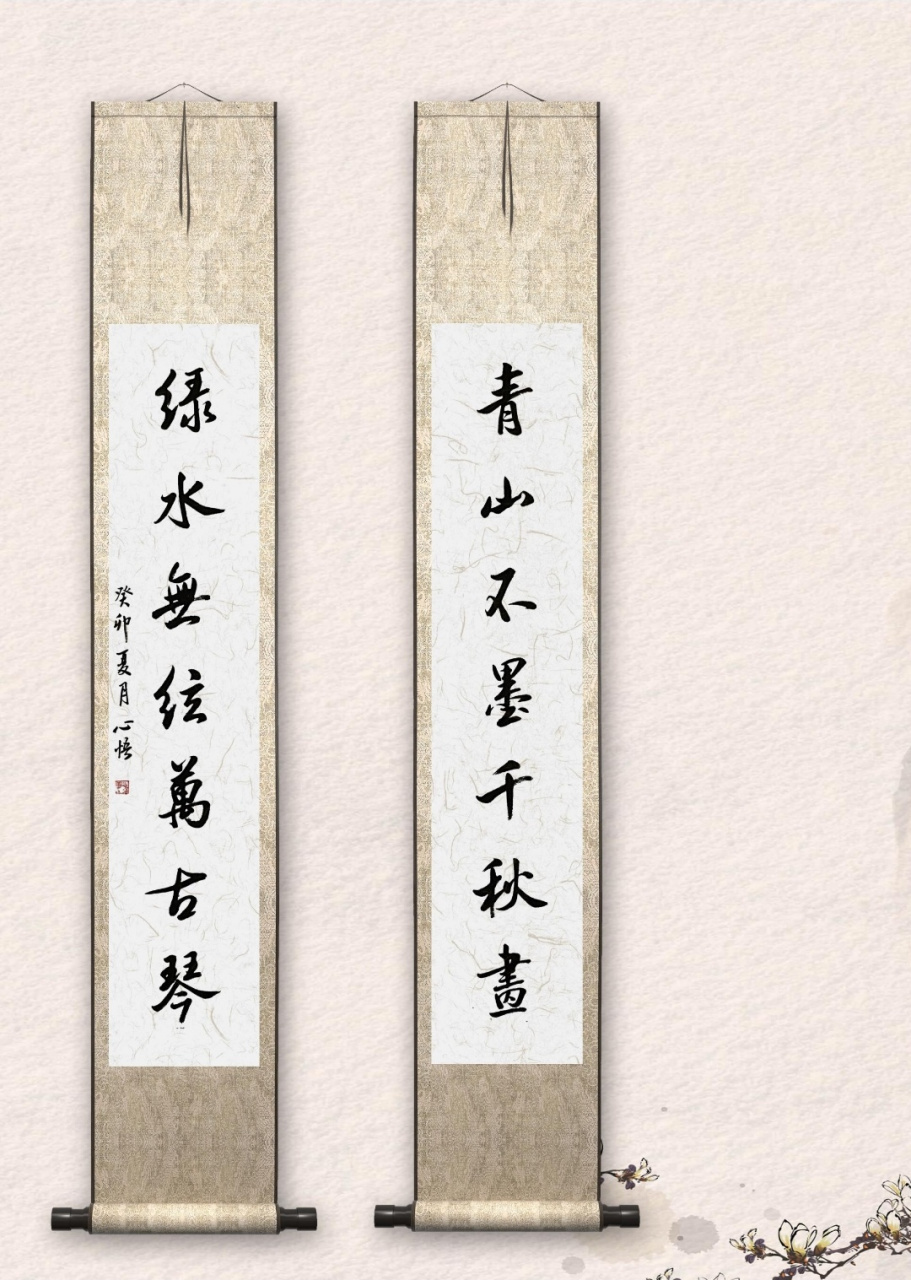 青山不墨千秋畫
绿水無弦萬古琴
癸卯夏月 心悟